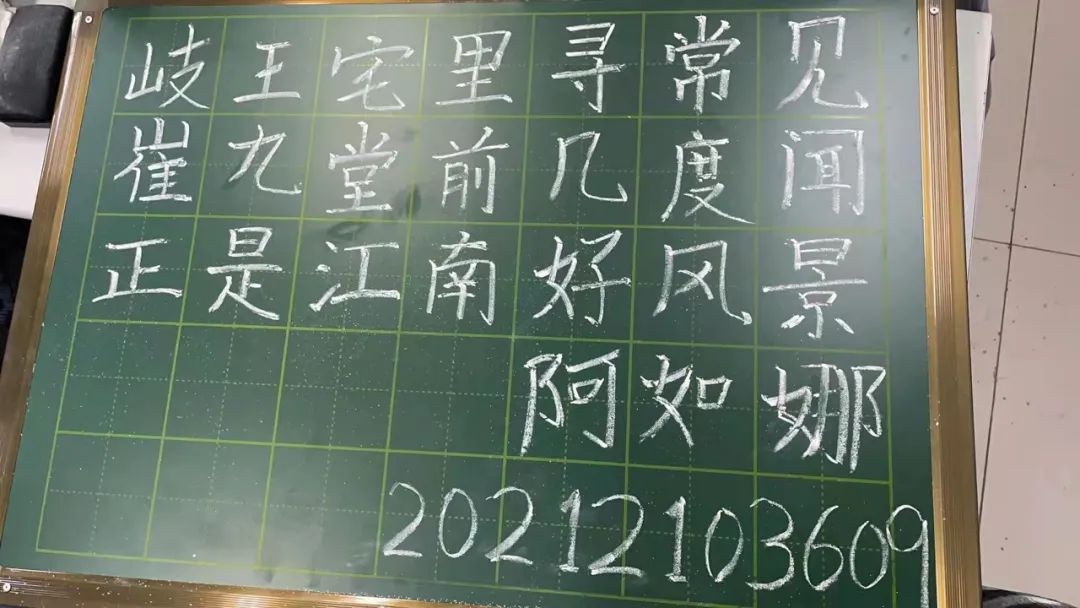 岐王宅里寻常见
崔九堂前几度闻
正是江南好风景
阿如娜
20212103609